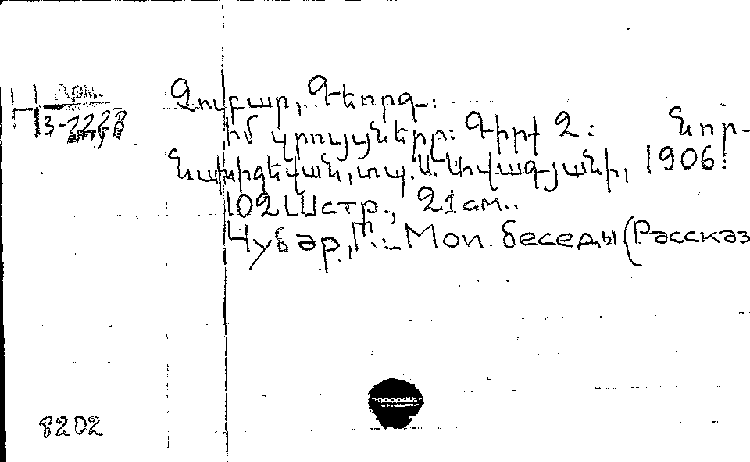 Арм.
Н 3-2228
Չուբար, Գեորգ.
Իմ զրույցները: Գիրք 2: Նոր-
Նախիջեվան, տպ. Ս. Ավագյանի, 1906:
102 стр., 21 см.
Чубар, Г. - Мои беседы (Рассказ
8202